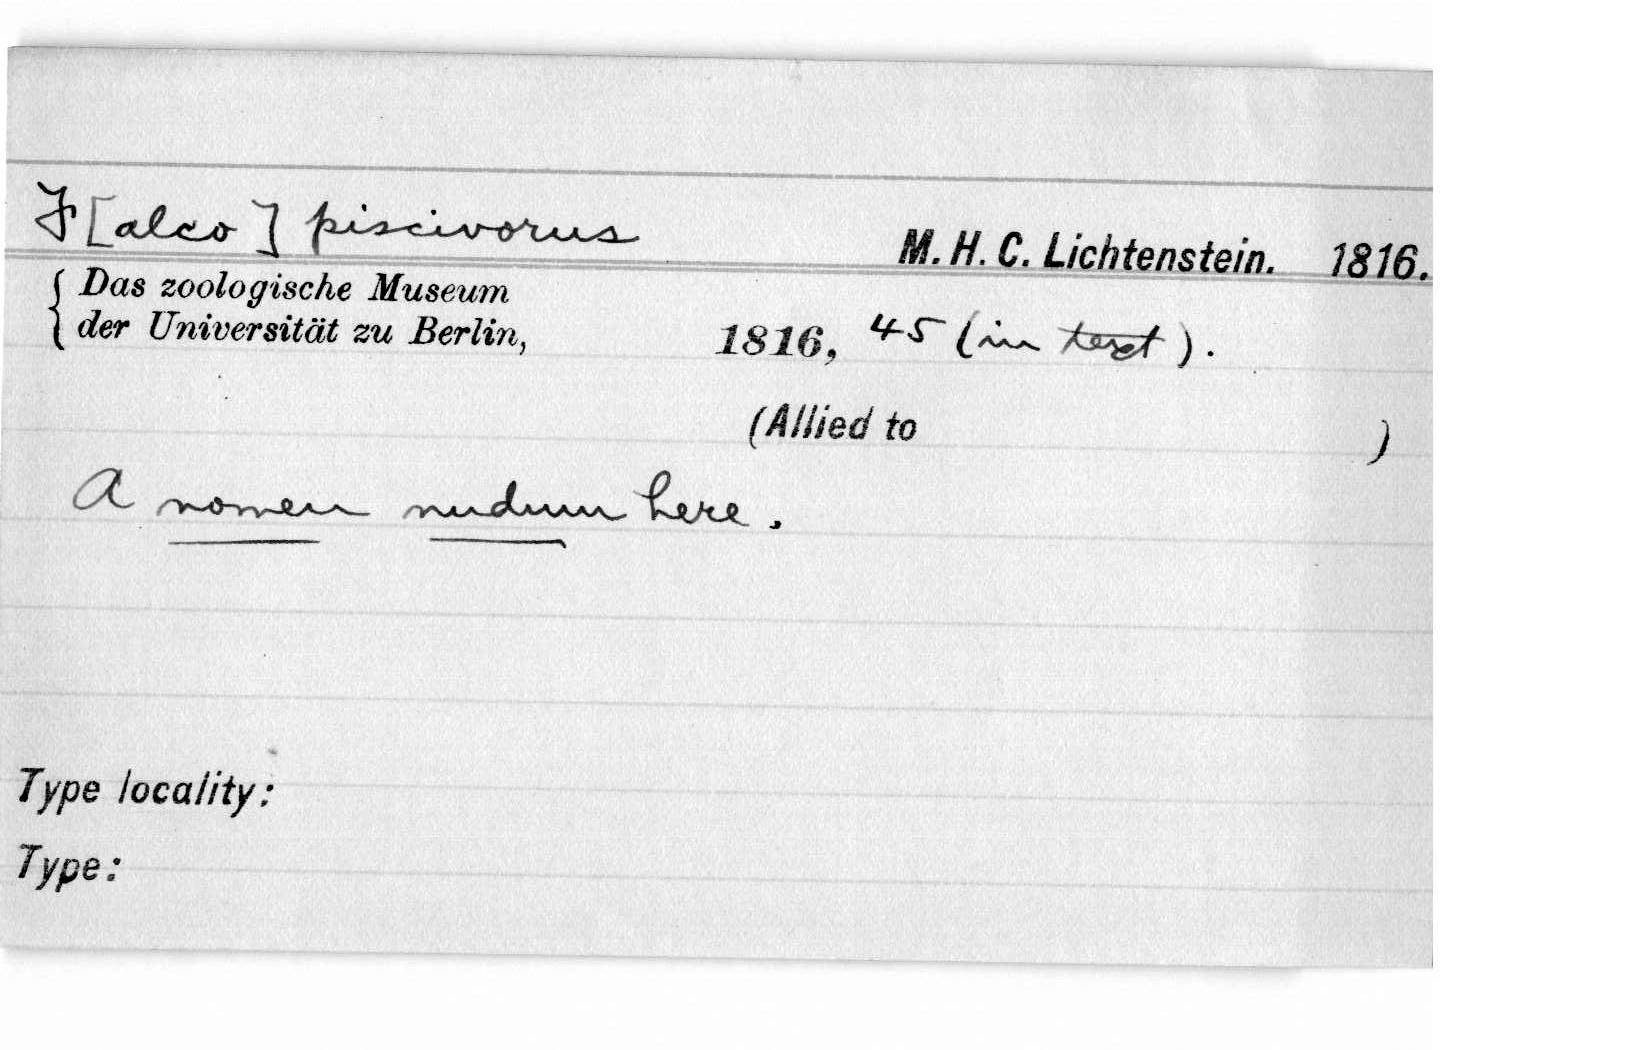 F[alco] piscivorus M. H. C. Lichtenstein. 1816.
Das zoologische Museum
der Universität zu Berlin, 1816, 45 (in text).
(Allied to )
A nomen nudum here.
Type locality:
Type: